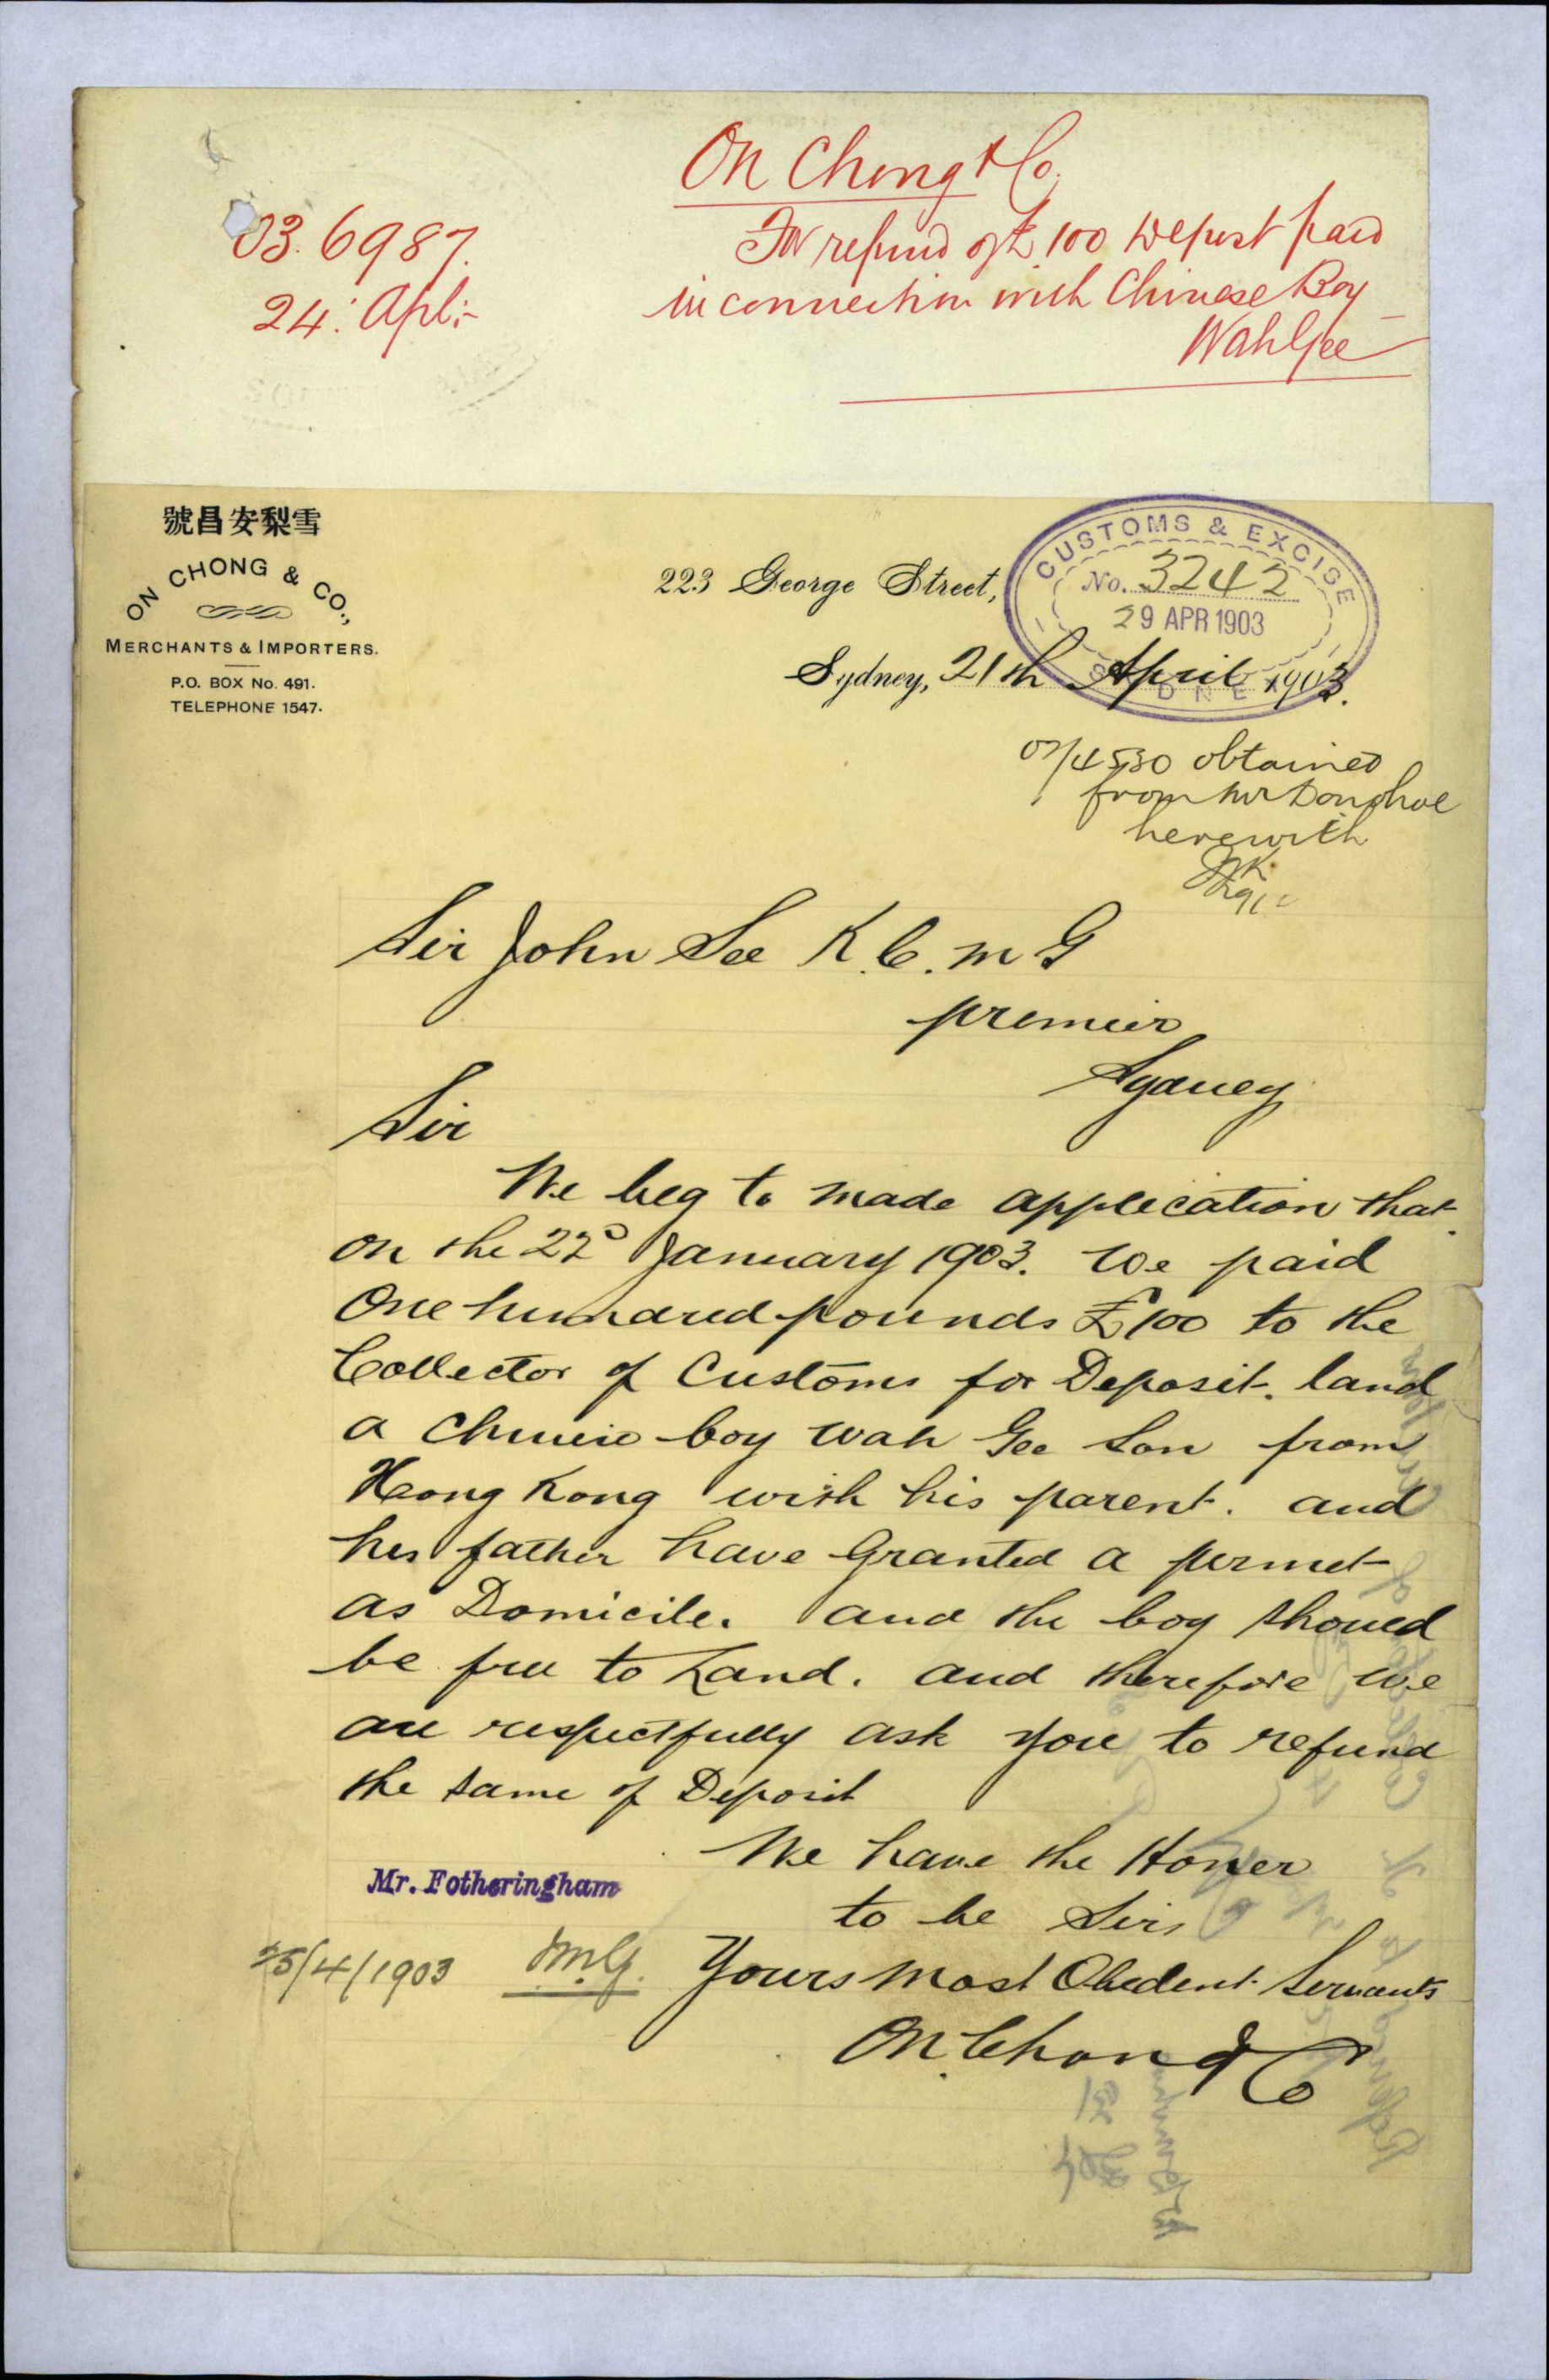 On Chong & Co.
03.6987.
24: Apl:-
For refund of £100 Deposit paid
in connection with Chinese Boy -
Wah Gee
號昌安梨雪
ON CHONG & CO.,
MERCHANTS & IMPORTERS.
P.O. BOX No. 491.
TELEPHONE 1547.
223 George Street,
CUSTOMS & EXCISE
No. 3242
29 APR 1903
SYDNEY
Sydney, 21th April 1903.
03/4530 obtained
from Mr Donohoe
herewith
Sir John See K.C.M G
premier
Sydney
Sir
We beg to made application that
on the 22d January 1903. We paid
One hundared pounds £100 to the
Collector of Customs for Deposit. land
a Chinese boy Wah Gee Son from
Hong Kong with his parent. and
his father have Granted a permit
as Domicile. and the boy should
be free to Land. and therefore we
are respectfully ask you to refund
the same of Deposit
We have the Honer
to be Sirs
Mr. Fotheringham
25/4/1903
Yours most Obedent Servants
On Chong & Co